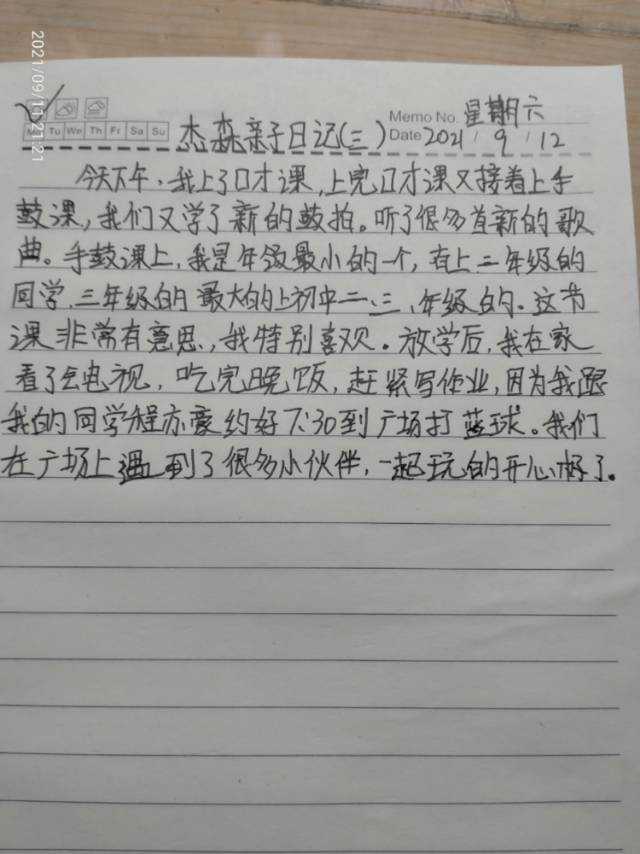 2021/09/11 21:21
Memo No. 星期六
M Tu We Th Fr Sa Su
杰森亲子日记(三) Date 2021 / 9 / 12
今天下午,我上了口才课,上完口才课又接着上手
鼓课,我们又学了新的鼓拍。听了很多首新的歌
曲。手鼓课上,我是年级最小的一个,有上二年级的
同学,三年级的最大的上初中二、三、年级的。这节
课非常有意思,我特别喜欢。放学后,我在家
看了会电视,吃完晚饭,赶紧写作业,因为我跟
我的同学程亦豪约好7:30到广场打蓝球。我们
在广场上遇到了很多小伙伴,一起玩的开心极了。